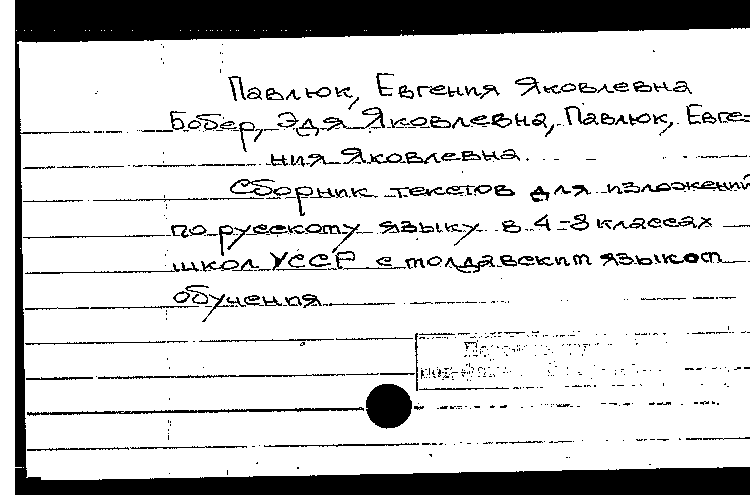 Павлюк, Евгения Яковлевна
Бобер, Эдя Яковлевна, Павлюк, Евге-
ния Яковлевна.
Сборник текстов для изложений
по русскому языку в 4-8 классах
школ УССР с молдавским языком
обучения.